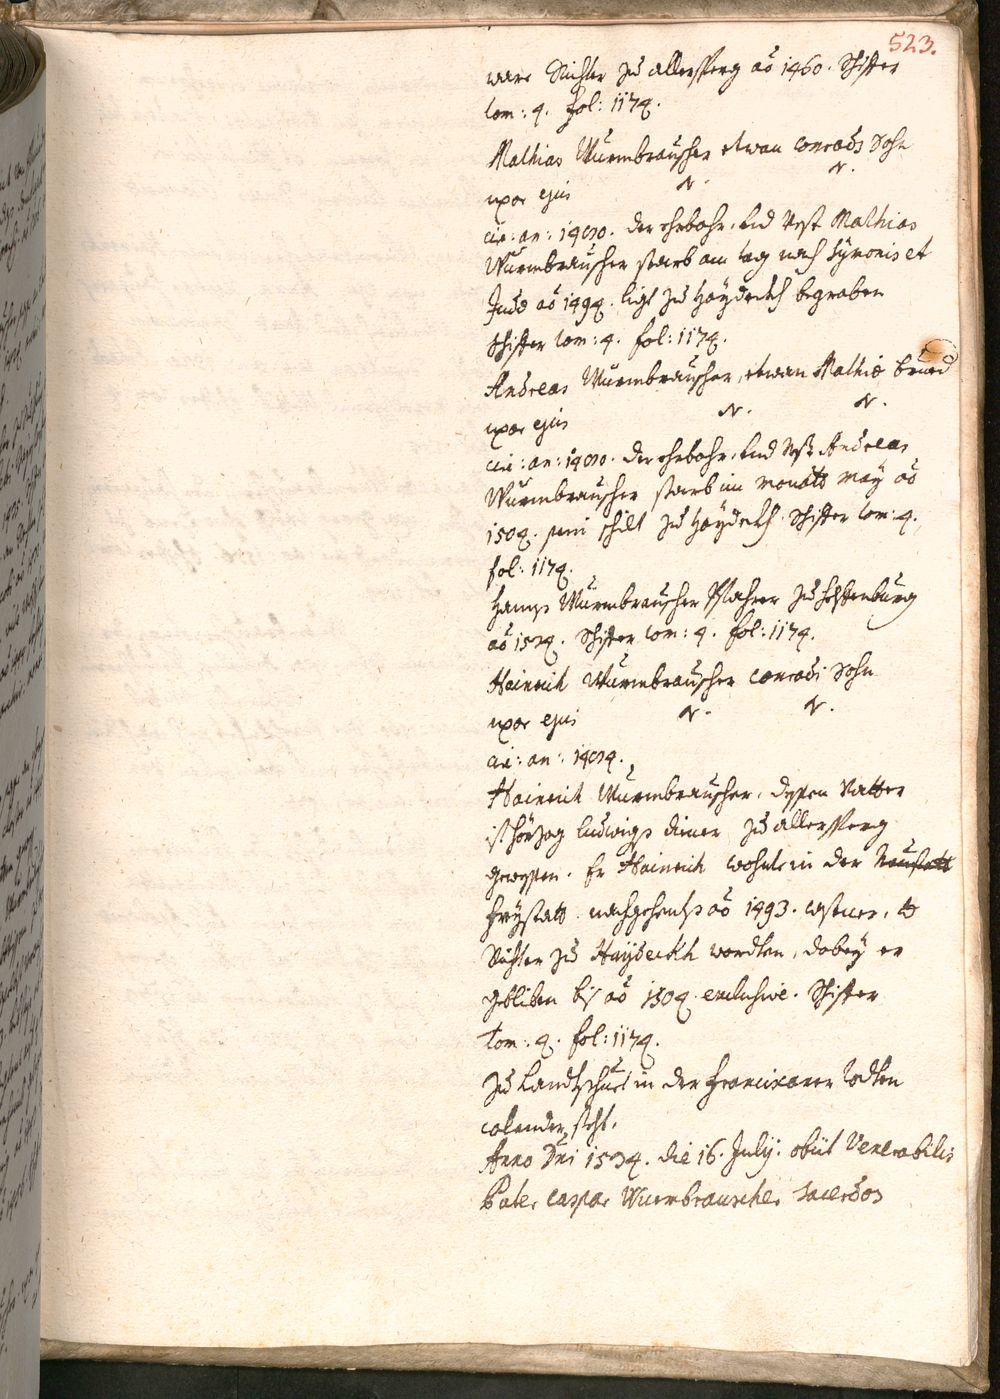 523.
ware Richter zu allersperg aõ 1460. Schifer
tom: 4. fol: 1174.
Mathias Wurmbrauscher etwan Conrads Sohn
uxor ejus N. N.
cir: an: 1490. der ehrbahr. und Vest Mathias
Wurmbrauscher starb am tag nach Symonis et
Juda aõ 1494. ligt zu Haydeckh begraben
Schifer tom: 4. fol: 1174.
Andreas Wurmbrauscher, etwan Mathiæ brued
uxor ejus N. N.
cir: an: 1490. der ehrbahr. und Vest Andreas
Wurmbrauscher starb im monath May aõ
1504. sein schilt zu Haydeckh Schifer tom: 4.
fol: 1174.
Hanns Wurmbrauscher Pfahrer zu
aõ 1524. Schifer tom: 4. fol: 1174.
Hainrich Wurmbrauscher Conradi Sohn
uxor ejus N. N.
cir: an: 1494.
Hainrich Wurmbrauscher, dessen Vatter
ist Herzog Ludwigs diener zu allersperg
gewessen. Er Hainrich wohnte in der Neustatt
Freystatt nachgehents aõ 1493. castner, et
Richter zu Haydeckh worden, dabey er
gebliben biß aõ 1504. exclusive. Schifer
tom: 4. fol: 1174.
Zu Landtshuet in der Franciscaner todten
calender steht.
Anno Dñi 1534. die 16. July. obiit Venerabilis
Pater Caspar Wurmbrauscher Sacerdos